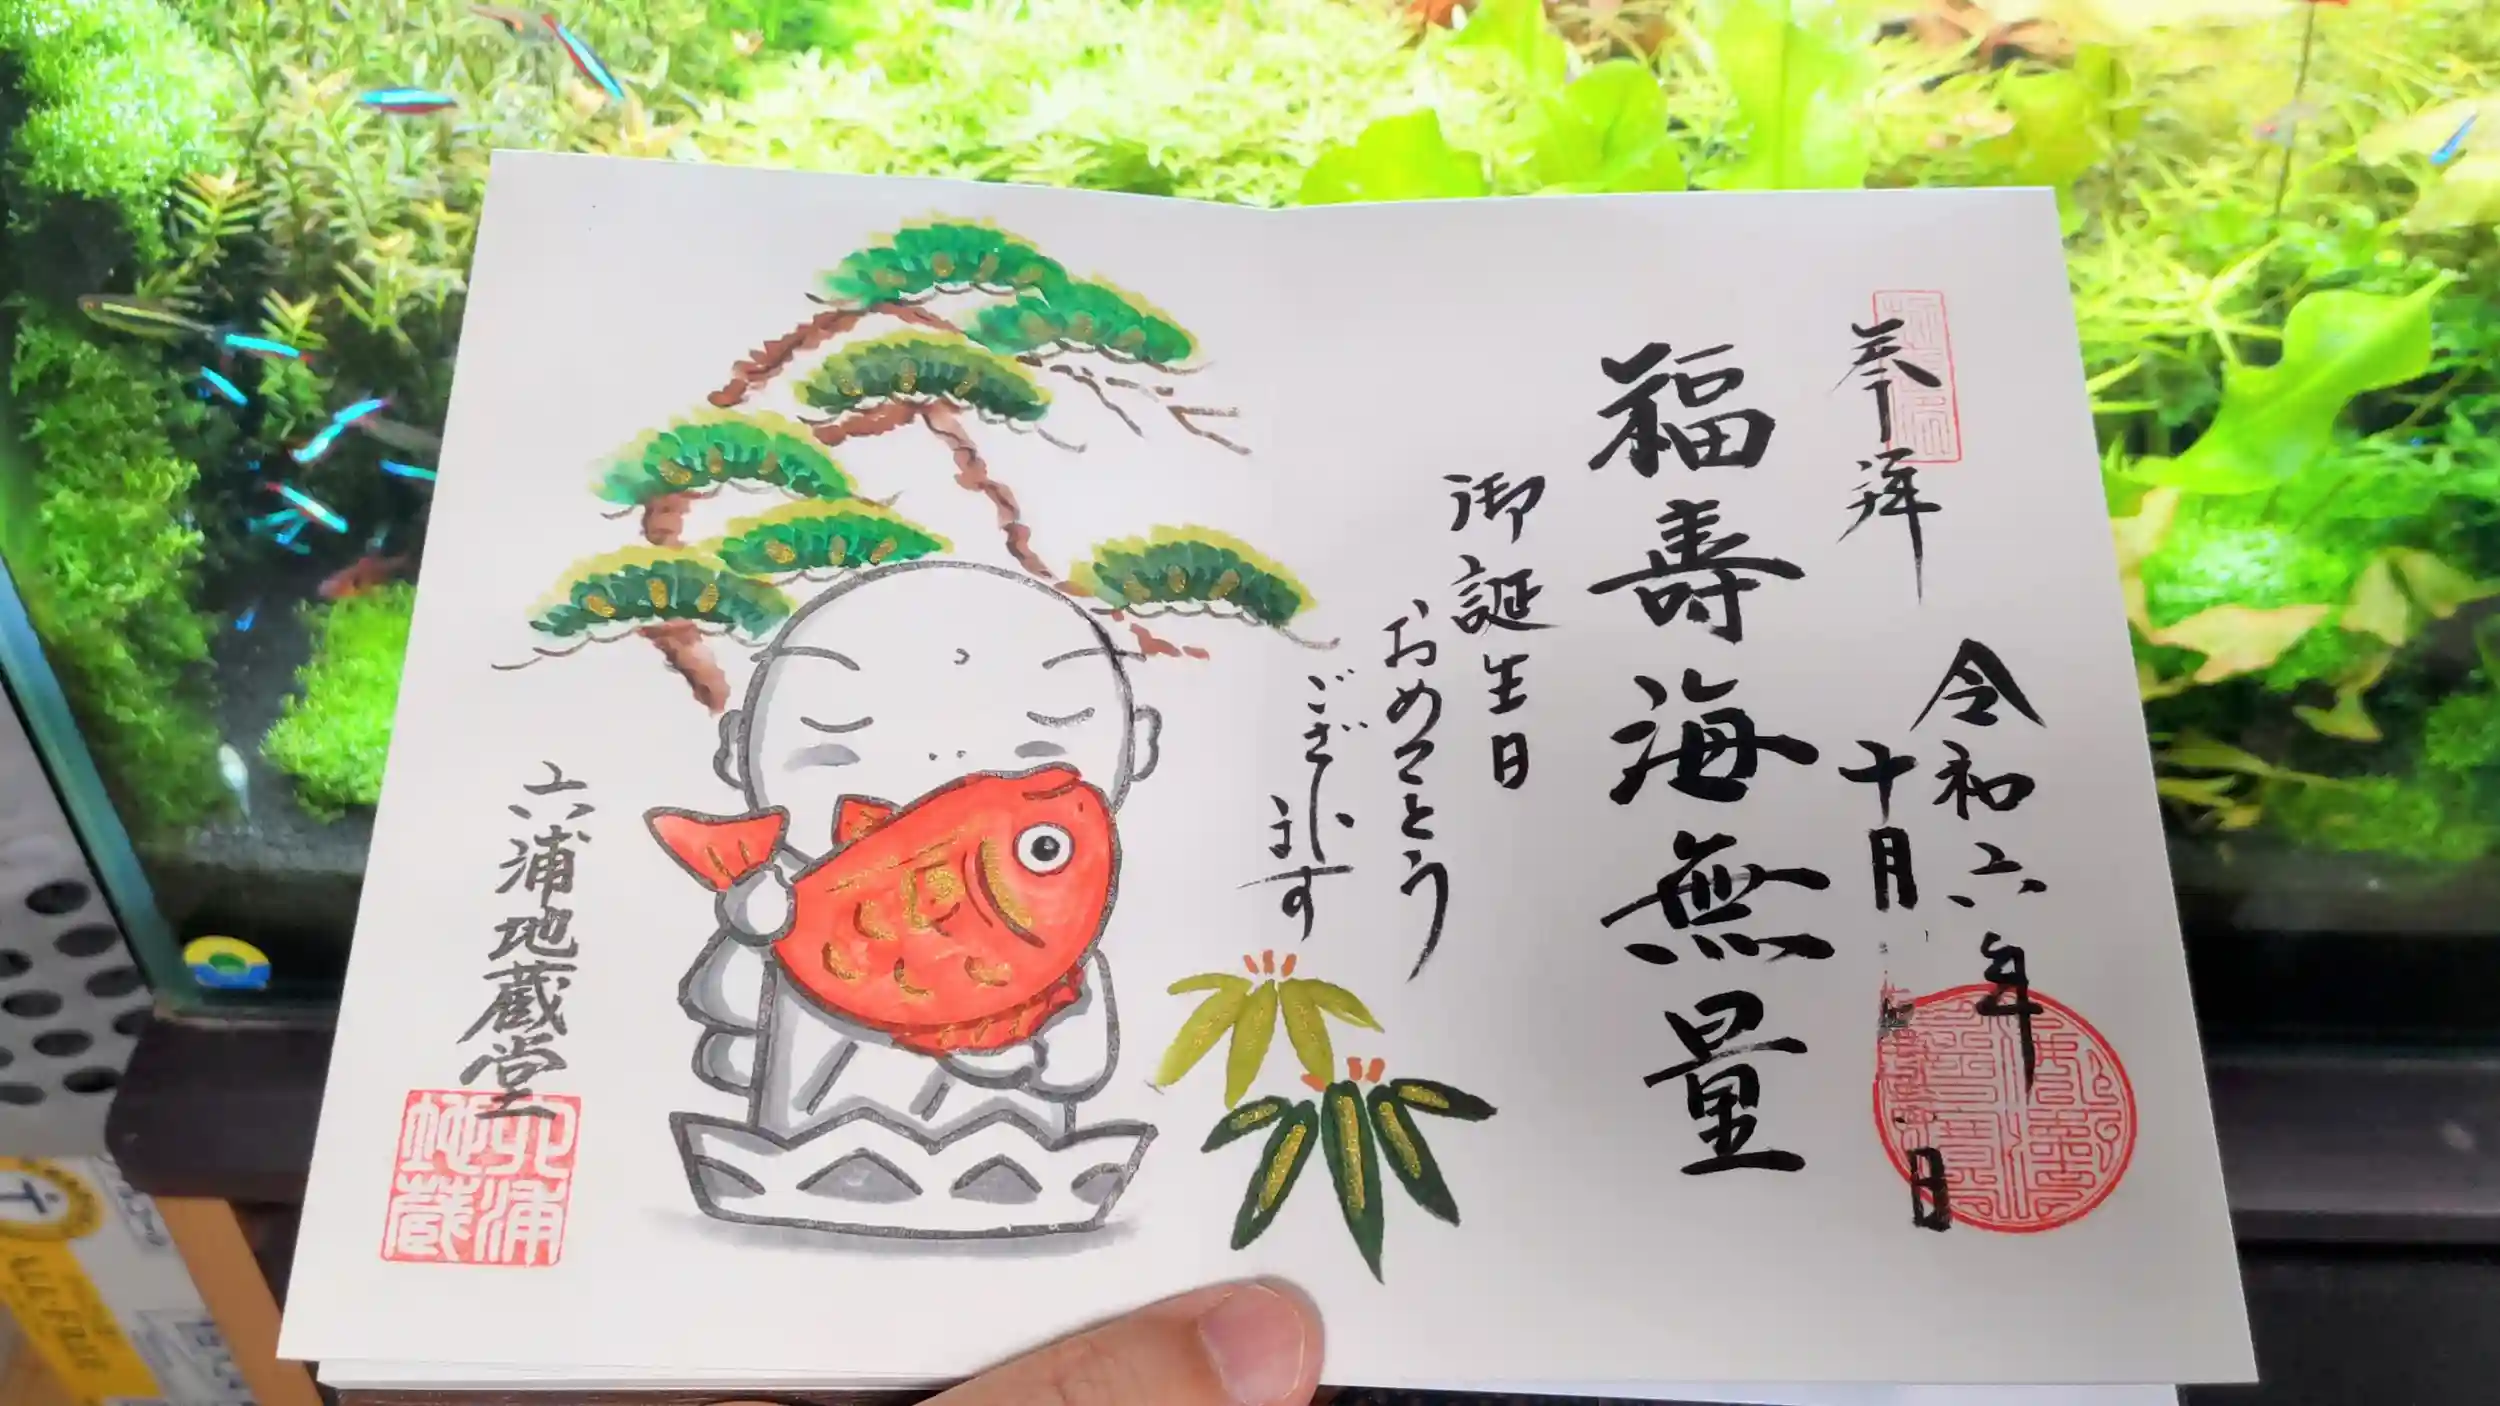 奉拝
令和六年
十月
日
福壽海無量
御誕生日
おめでとう
ございます
六浦地蔵堂
六浦
地蔵